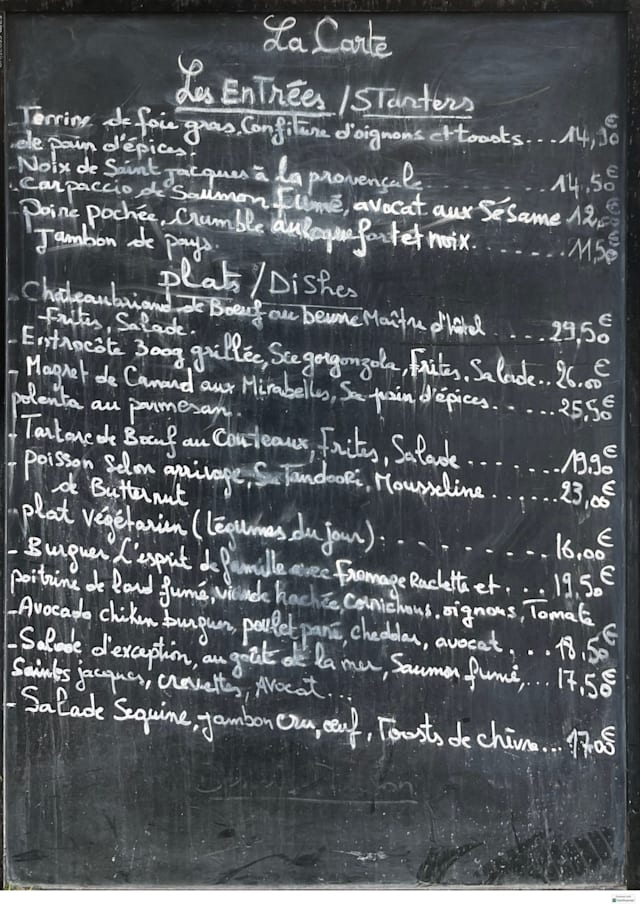 La Carte
Les EnTrées / STarters
- Terrine de foie gras, Confiture d'oignons et toasts... 14,50€
de pain d'épices.
- Noix de Saint jacques à la provençale ... 14,50€
- Carpaccio de Saumon Fumé, avocat aux Sésame 12,00€
- Poire pochée, Crumble au roquefort et noix....... 11,50€
Jambon de pays.
plats / Dishes
- Chateaubriand de Boeuf au beurre Maître d'hôtel ...... 29,50€
Frites, Salade.
- Entrocôte 300g grillée, Sce gorgonzola, Frites, Salade.. 26.00€
- Magret de Canard aux Mirabelles, Sce pain d'épices....... 25,50€
polenta au parmesan.
- Tartare de Boeuf au Couteaux, Frites, Salade ....... 19.90€
- poisson Selon arrivage, Sce Tandoori, Mousseline....... 23,00€
de Butternut
- plat végétarien (légumes du jour)........... 16,00€
- Burguer L'esprit de famille avec Fromage Raclette et ... 19,50€
poitrine de lard fumé, viande hachée Cornichons, oignons, Tomate
- Avocado chiken burguer, poulet pané, cheddar, avocat... 18,50€
- Salade d'exception, au goût de la mer, Saumon fumé,... 17,50€
Saints jacques, crevettes, Avocat...
- Salade Sequine, jambon cru, oeuf, Toasts de chèvre... 17.00€